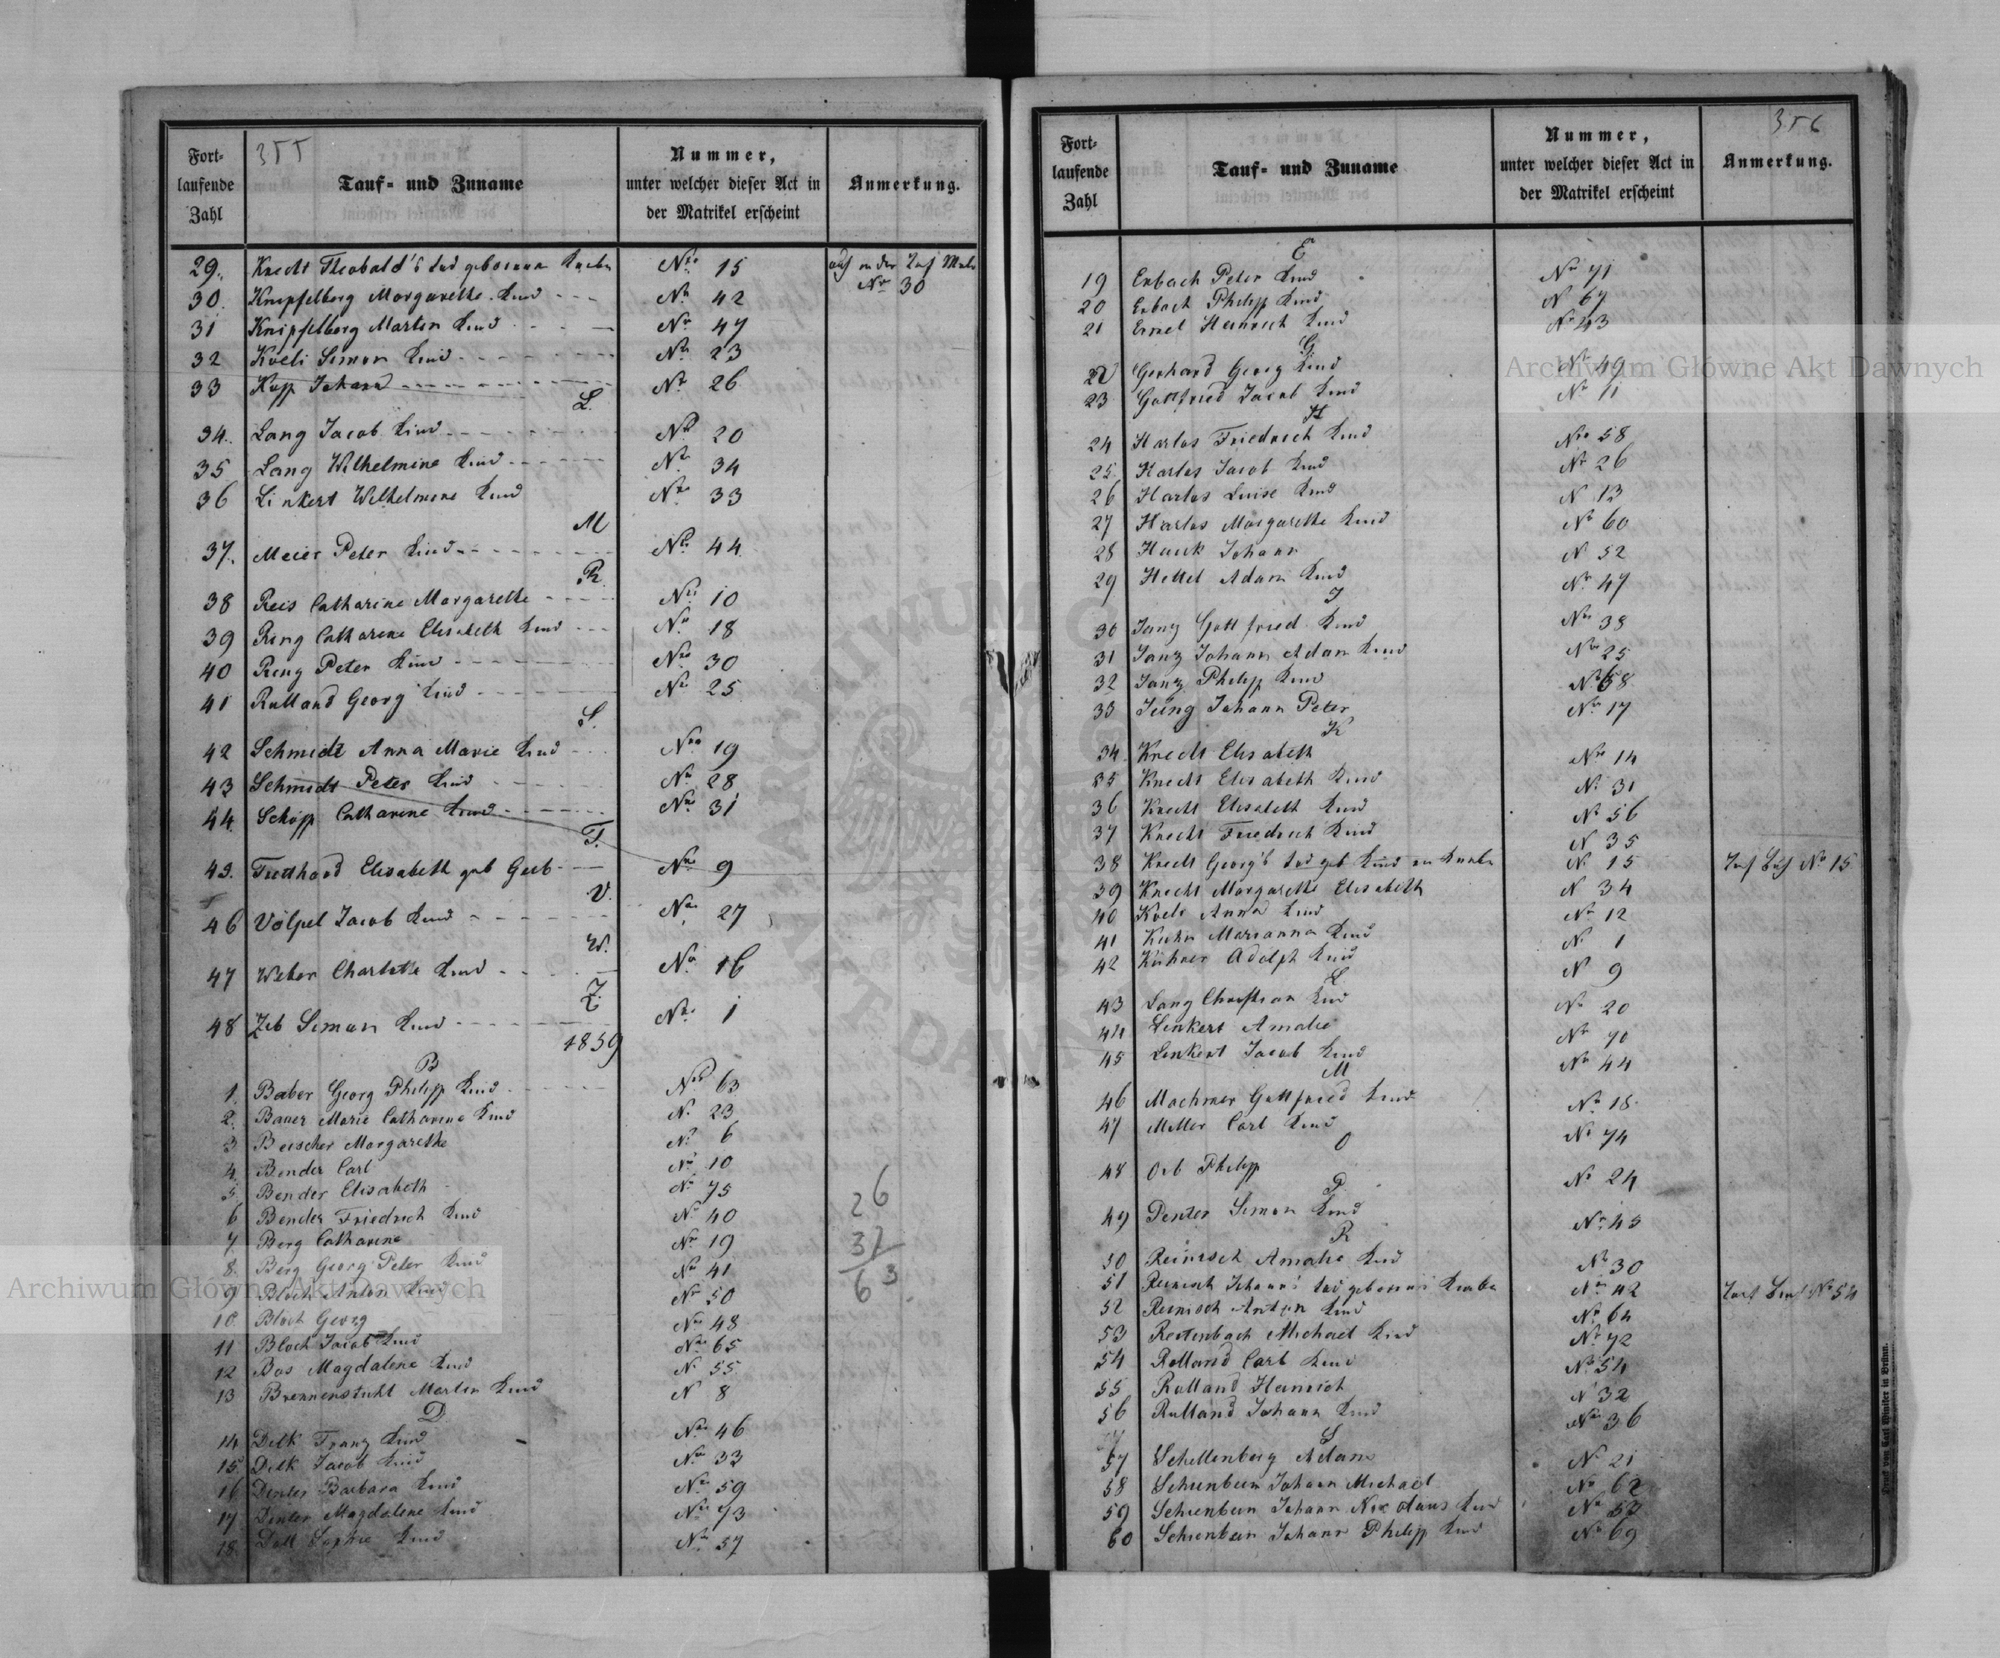 355
Fort-
laufende
Zahl
Tauf- und Zuname
Nummer,
unter welcher dieser Act in
der Matrikel erscheint
Anmerkung.
29. Knecht Theobald's tod geborener Knabe Nro 15
No 30
30. Knipfelberg Margarethe Kind No 42
31 Knipfelberg Martin Kind No 47
32 Koeli Simon Kind No 23
33 Kopp Johann No 26
L.
34. Lang Jacob Kind No 20
35 Lang Wilhelmine Kind No 34
36 Linkert Wilhelmine Kind Nro 33
M
37. Meier Peter Kind No 44
R.
38 Reis Catharine Margarethe No 10
39 Ring Catharine Elisabeth Kind No 18
40 Ring Peter Kind Nro 30
41 Rulland Georg Kind No 25
S.
42 Schmidt Anna Marie Kind Nro 19
43 Schmidt Peter Kind No 28
44. Schöpp Catharine Kind Nro 31
T.
45. Elisabeth geb Nro 9
V.
46 Völpel Jacob Kind No 27
W.
47 Weber Charlotte Kind No 16
Z.
48 Zeb Simon Kind No 1
1859
B
1. Baber Georg Philipp Kind Nro 63
2. Bauer Marie Catharine Kind No 23
3 Beischer Margarethe No 6
4. Bender Carl No 10
5. Bender Elisabeth No 75
6 Bender Friedrich Kind No 40
7. Berg Catharine No 19
8. Berg Georg Peter Kind No 41
9 Bloch Anton Kind No 50
10. Bloch Georg No 48
11 Bloch Jacob Kind No 65
12 Bos Magdalene Kind No 55
13 Brennenstuhl Martin Kind N 8
D
14. Delk Franz Kind No 46
15. Delk Jacob Kind No 33
16 Denter Barbara Kind No 59
17. Denter Magdalene Kind No 73
18. Doll Sophie Kind No 57
26
37
63
356
Fort-
laufende
Zahl
Tauf- und Zuname
Nummer,
unter welcher dieser Act in
der Matrikel erscheint
Anmerkung.
E
19 Erbach Peter Kind No 71
20 Erbach Philipp Kind N 67
21 Ernel Heinrich Kind No 43
G
22 Gerhard Georg Kind No 49
23 Gottfried Jacob Kind No 11
H
24 Harlos Friedrich Kind Nro 58
25. Harlos Jacob Kind No 26
26 Harlos Luise Kind N 13
27 Harlos Margarethe Kind No 60
28 Hauck Johann N 52
29 Hettel Adam Kind No 47
J
30 Janz Gottfried Kind No 38
31 Janz Johann Adam Kind No 25
32 Janz Philipp Kind No 68
33 Jung Johann Peter No 17
K
34. Knecht Elisabeth No 14
35 Knecht Elisabeth Kind No 31
36 Knecht Elisabeth Kind No 56
37 Knecht Friedrich Kind N 35
38 Knecht Georg's tod geb Kind ein Knabe N 15 No 15
39 Knecht Margarethe Elisabeth N 34
40 Koeli Anna Kind No 12
41 Kuhn Marianna Kind N 1
42 Kühner Adolph Kind N 9
L
43 Lang Christian Kind No 20
44 Linkert Amalie No 70
45 Linkert Jacob Kind No 44
M
46 Machmer Gottfried Kind No 18
47 Miller Carl Kind No 74
O
48 Orb Philipp No 24
P.
49 Penter Simon Kind No 45
R
50 Reinisch Amalie Kind No 30
51 Reinisch Johann's tod geborener Knabe No 42 No 54
52 Reinisch Anton Kind No 64
53 Reitenbach Michael Kind No 72
54 Rulland Carl Kind No 54
55 Rulland Heinrich N 32
56 Rulland Johann Kind No 36
S
57 Schellenberg Adam N 21
58 Schienbein Johann Michael No 62
59 Schienbein Johann Nicolaus Kind No
60 Schienbein Johann Philipp Kind No 69
Druck von Carl Winiker in Brünn.
Archiwum Główne Akt Dawnych
Archiwum Główne Akt Dawnych